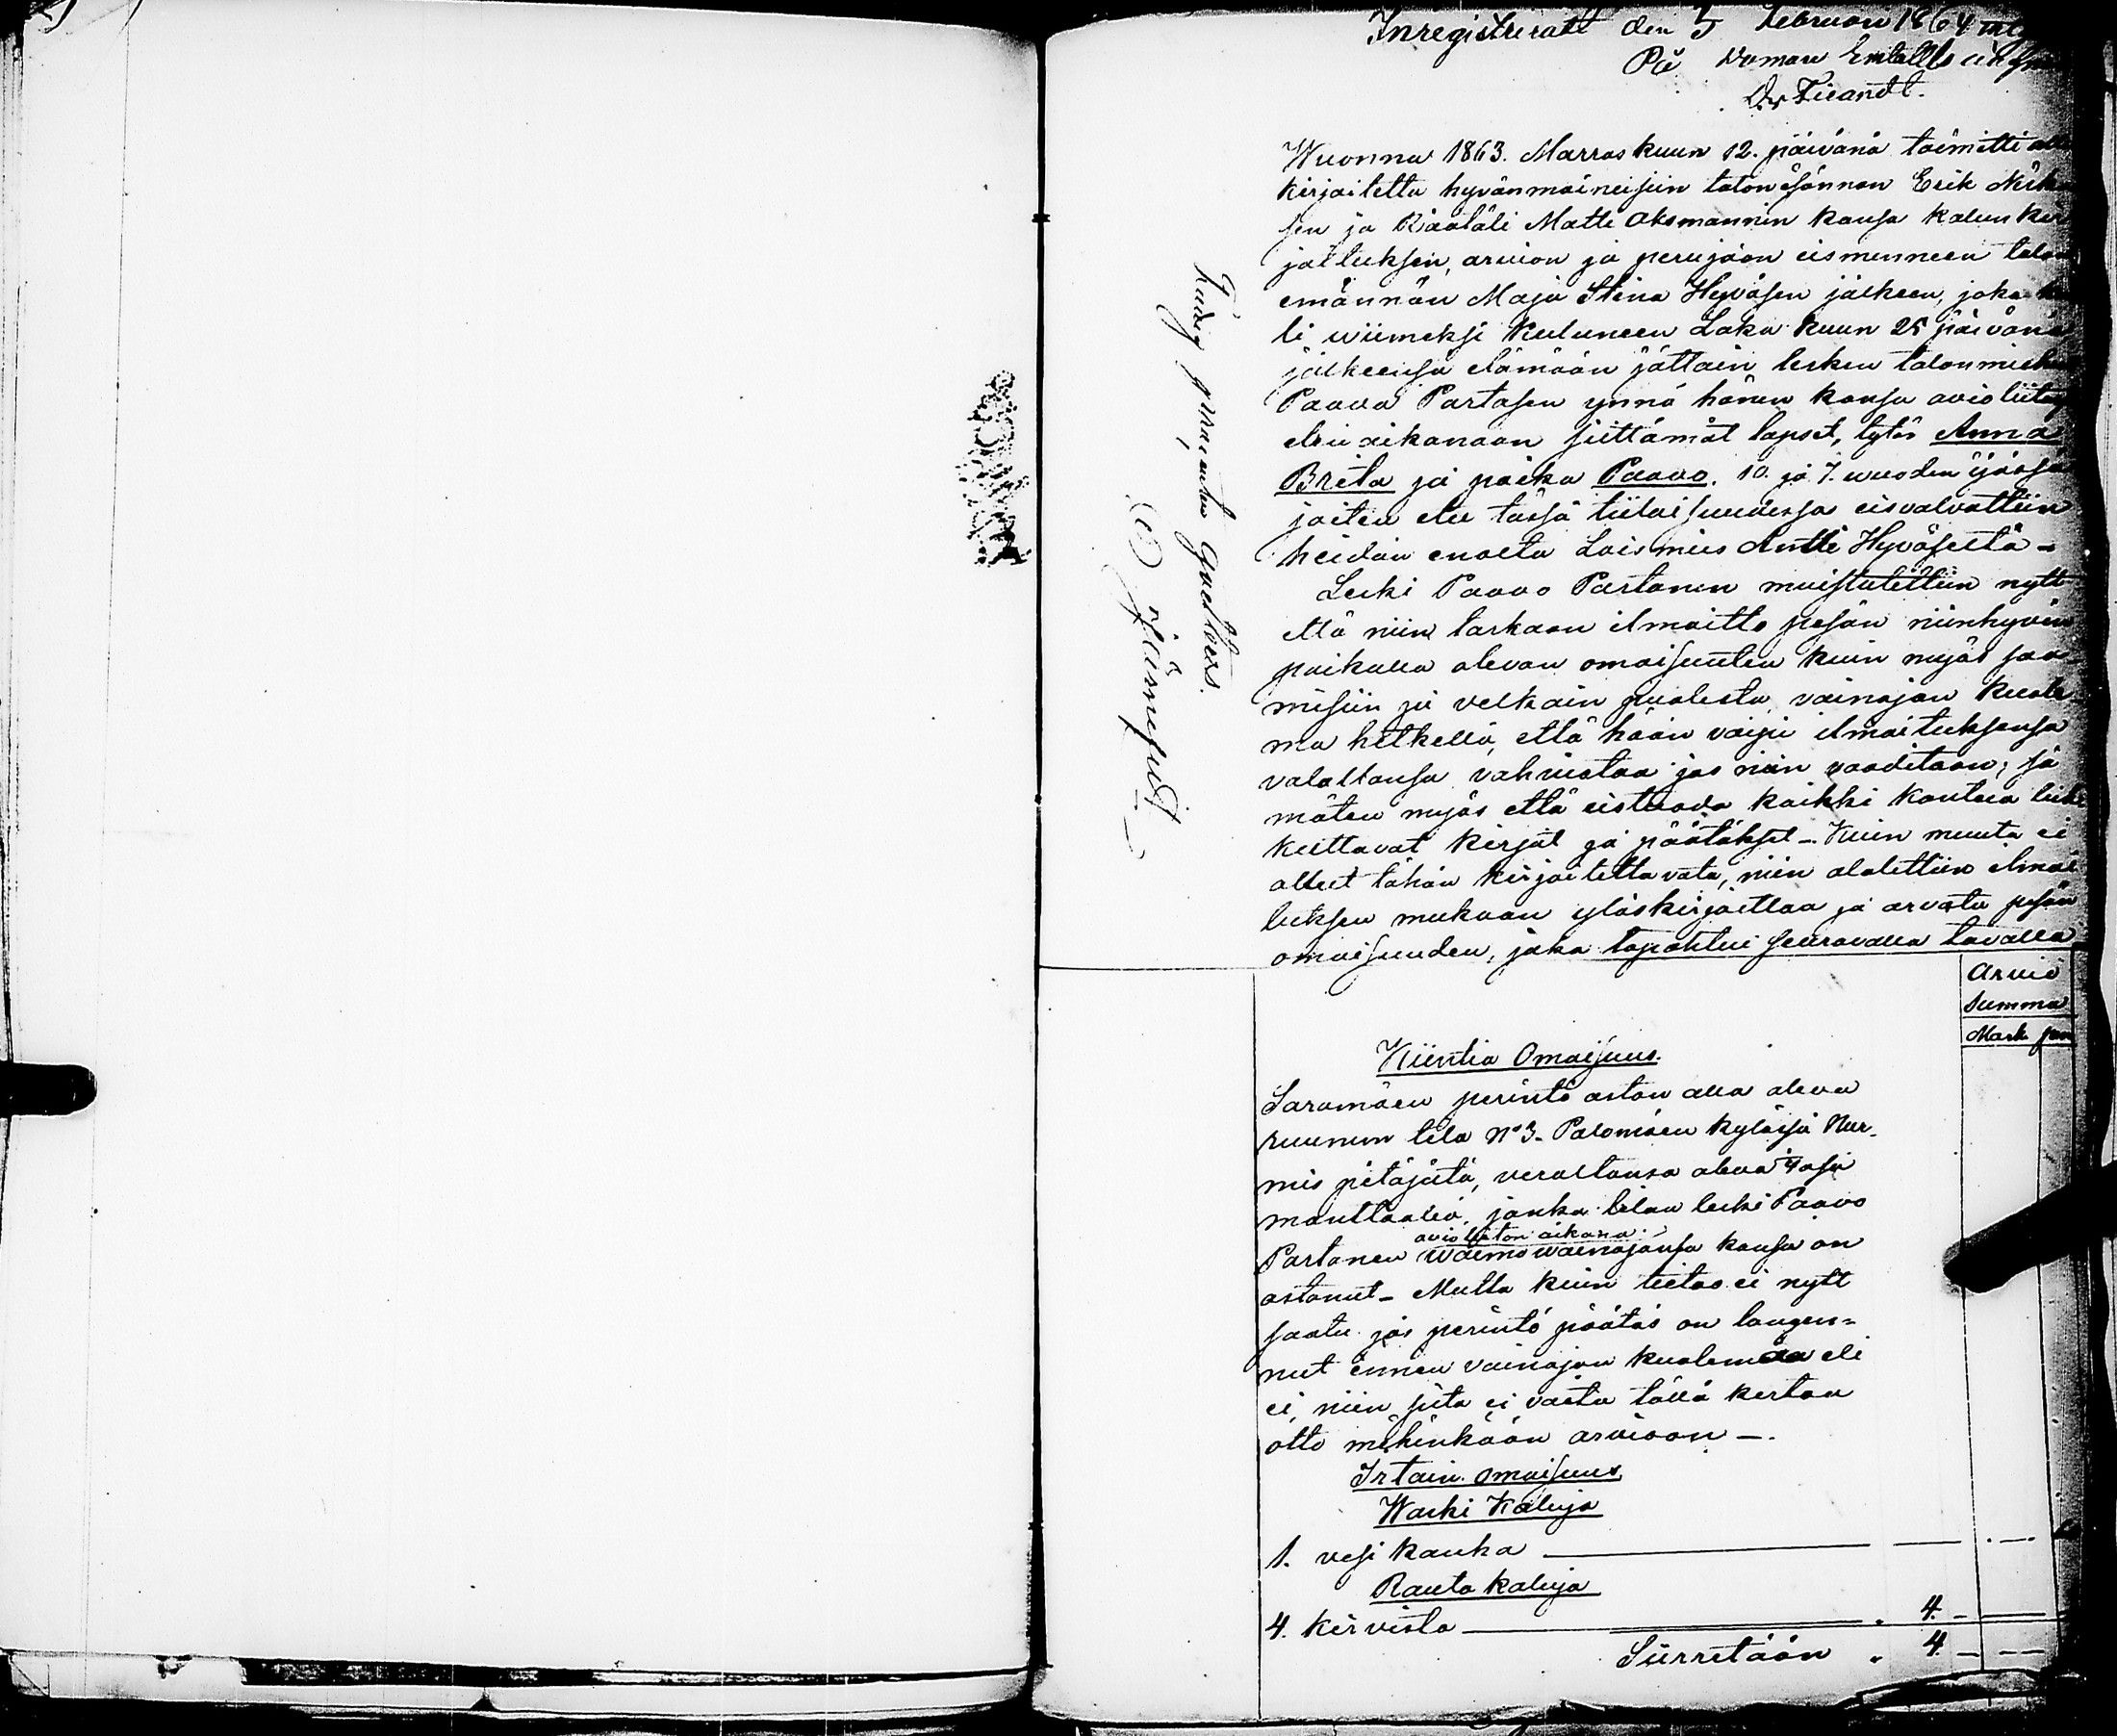 Inregistreratt den 5 Februari 1864
På Domare Embetts
Wuonna 1863. Marraskuun 12. päivänä toimitti
kirjoitettu hyvänmaineisiin talonisännän Erik
sen ja Räätäli Matti Oksmannin kansa kalun kir
joituksen, arvion ja perujaon eismenneen talon
emännän Maja Stina Hyväsen jälkeen, joka
li wiimeksi kuluneen Loka kuun 25 päivänä
jälkeensä elämään jättäin lesken talonmiehen
Paavo Partasen ynnä hänen kansa avioliitosa
elin aikanaan siittämät lapset, tytär Anna
Breta ja poika Paavo. 10. ja 7. wuoden ijässä
joiten etu tässä tiilaisuudessa eisvalvottiin
heidän enolta Loismies Antti Hyväseltä -
Leski Paavo Partanen muistutettiin nytt
että niin tarkaan ilmoitta pesän niinhyvin
paikalla olevan omaisuuten kuin myös saa
misiin ja velkain puolesta vainajan kuole
ma hetkellä, että hään vaipi ilmoituksensa
valallansa vahvistaa jos niin vaaditaan; sa
moten myös että eistuoda kaikki
kuttavat kirjat ja päätökset -. Kuin muuta ei
olleet tähän kirjoitettavata, niin alotettiin ilmoi
tuksen mukaan yläskirjoittaa ja arvata pesän
omaisuuden, joka tapahtui seuravalla tavalla
Arvio
Summa
Mark pen
Kiintiä Omaisuus.
Saramäen perintö oston alla oleva
ruunun tila No 3. Palomäen kylässä Nur-
mis pitäjätä, verollansa oleva osa
manttaalia, jonka tilan leski Paavo
avioliiton aikana
Partanen waimo wainajansa kansa on
ostanut - Mutta kuin tietoo ei nytt
saatu jos perintö päätös on langen=
nut ennen vainajan kuolemaa eli
ei, niin sitä ei voitu tällä kertaa
otto mihinkään arvioon -.
Irtain omaisuus
Waski Kaluja
1. vesi kauha
Rauta kaluja
4. kirvistä 4. -
Siirretään 4 -